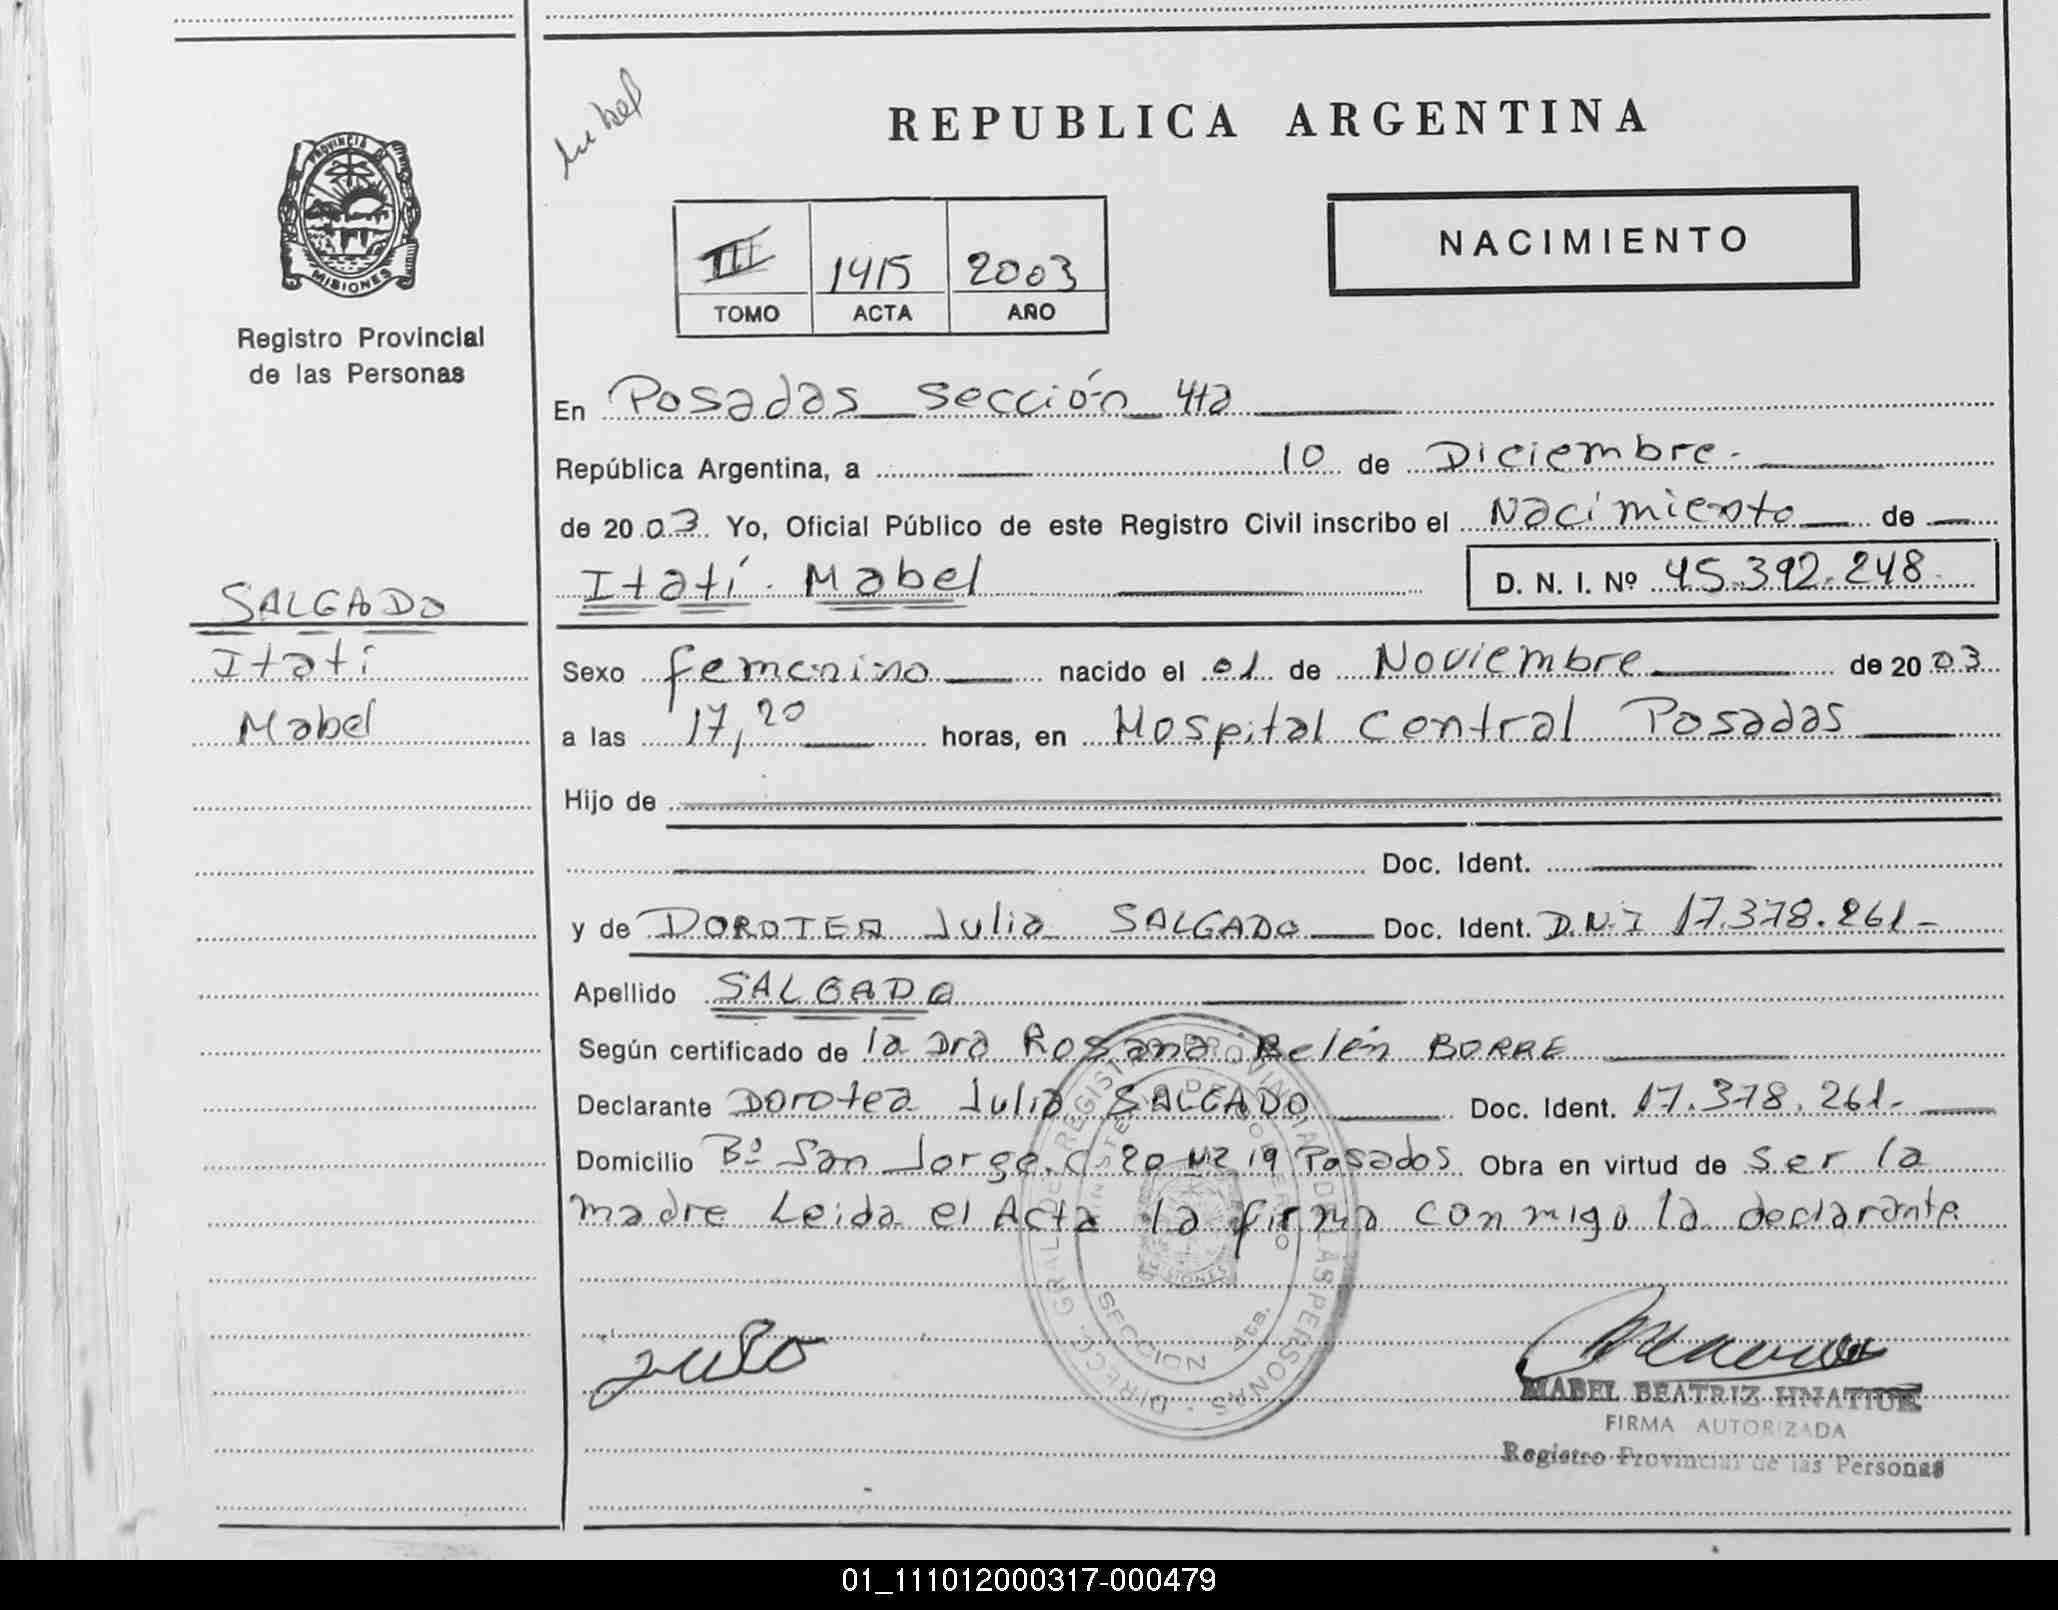 REPUBLICA ARGENTINA
PROVINCIA DE
MISIONES
Registro Provincial
de las Personas
NACIMIENTO
III 1415 2003
TOMO ACTA AÑO
En Posadas sección 4ta
República Argentina, a 10 de Diciembre.
de 2003. Yo, Oficial Público de este Registro Civil inscribo el Nacimiento de
Itatí. Mabel D. N. I. Nº 45.392.248
SALGADO
Itatí
Mabel
Sexo femenino nacido el 01 de Noviembre de 2003
a las 17,20 horas, en Hospital Central Posadas
Hijo de
Doc. Ident.
y de DOROTEA Julia SALGADO Doc. Ident. D.N.I 17.378.261-
Apellido SALGADO
Según certificado de la Dra Rosana Belén BORRE
Declarante Dorotea Julia SALGADO Doc. Ident. 17.378.261-
Domicilio Bº San Jorge. C 20 MZ 19 Posadas Obra en virtud de ser la
madre Leida el Acta la firma conmigo la declarante
DIRECC. GRAL DE REGISTRO PROVINCIAL DE LAS PERSONAS
MINISTERIO DE GOBIERNO
MISIONES
SECCION 4ta.
MABEL BEATRIZ HNATIUK
FIRMA AUTORIZADA
Registro Provincial de las Personas
01_111012000317-000479